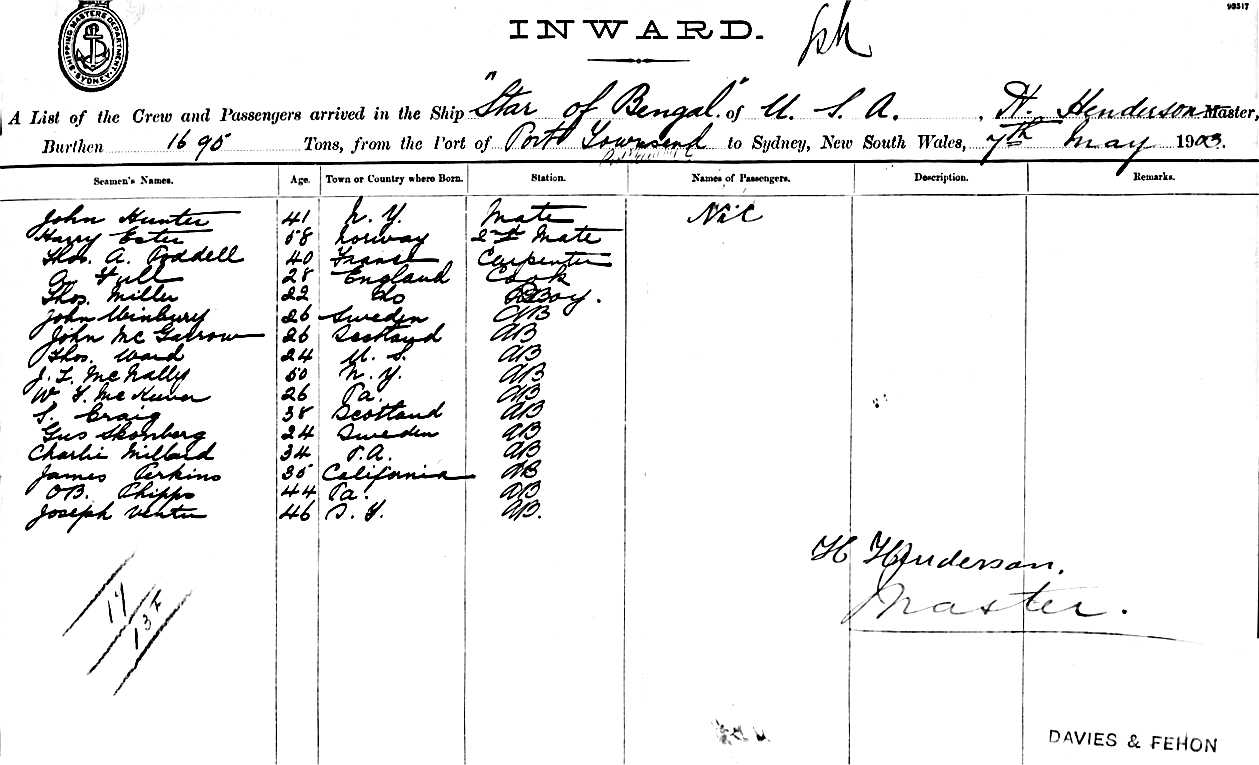 93517
INWARD.
SHIPPING MASTERS DEPARTMENT. SYDNEY.
A List of the Crew and Passengers arrived in the Ship "Star of Bengal" of U. S. A. , H. Henderson Master,
Burthen 1695 Tons, from the Port of Port Townsend to Sydney, New South Wales, 7th May 1903.
Seamen's Names. Age. Town or Country where Born. Station. Names of Passengers. Description. Remarks.
John Hunter 41 N. Y. Mate Nil
Harry Ester 58 Norway 2nd Mate
Thos. A. Poddell 40 France Carpenter
28 England Cook
Thos. Miller 22 Do Boy.
John Winbury 26 Sweden AB
John McGarrow 26 Scotland AB
Thos. Ward 24 U. S. AB
J. F. McNally 50 N. Y. AB
W. 26 Pa. AB
S. Craig 38 Scotland AB
Gus Skonberg 24 Sweden AB
Charlie Millard 34 P.A. AB
James Perkins 35 California AB
OB. Phipps 44 Pa. AB
Joseph 46 AB.
H Henderson.
Master.
17
137
DAVIES & FEHON